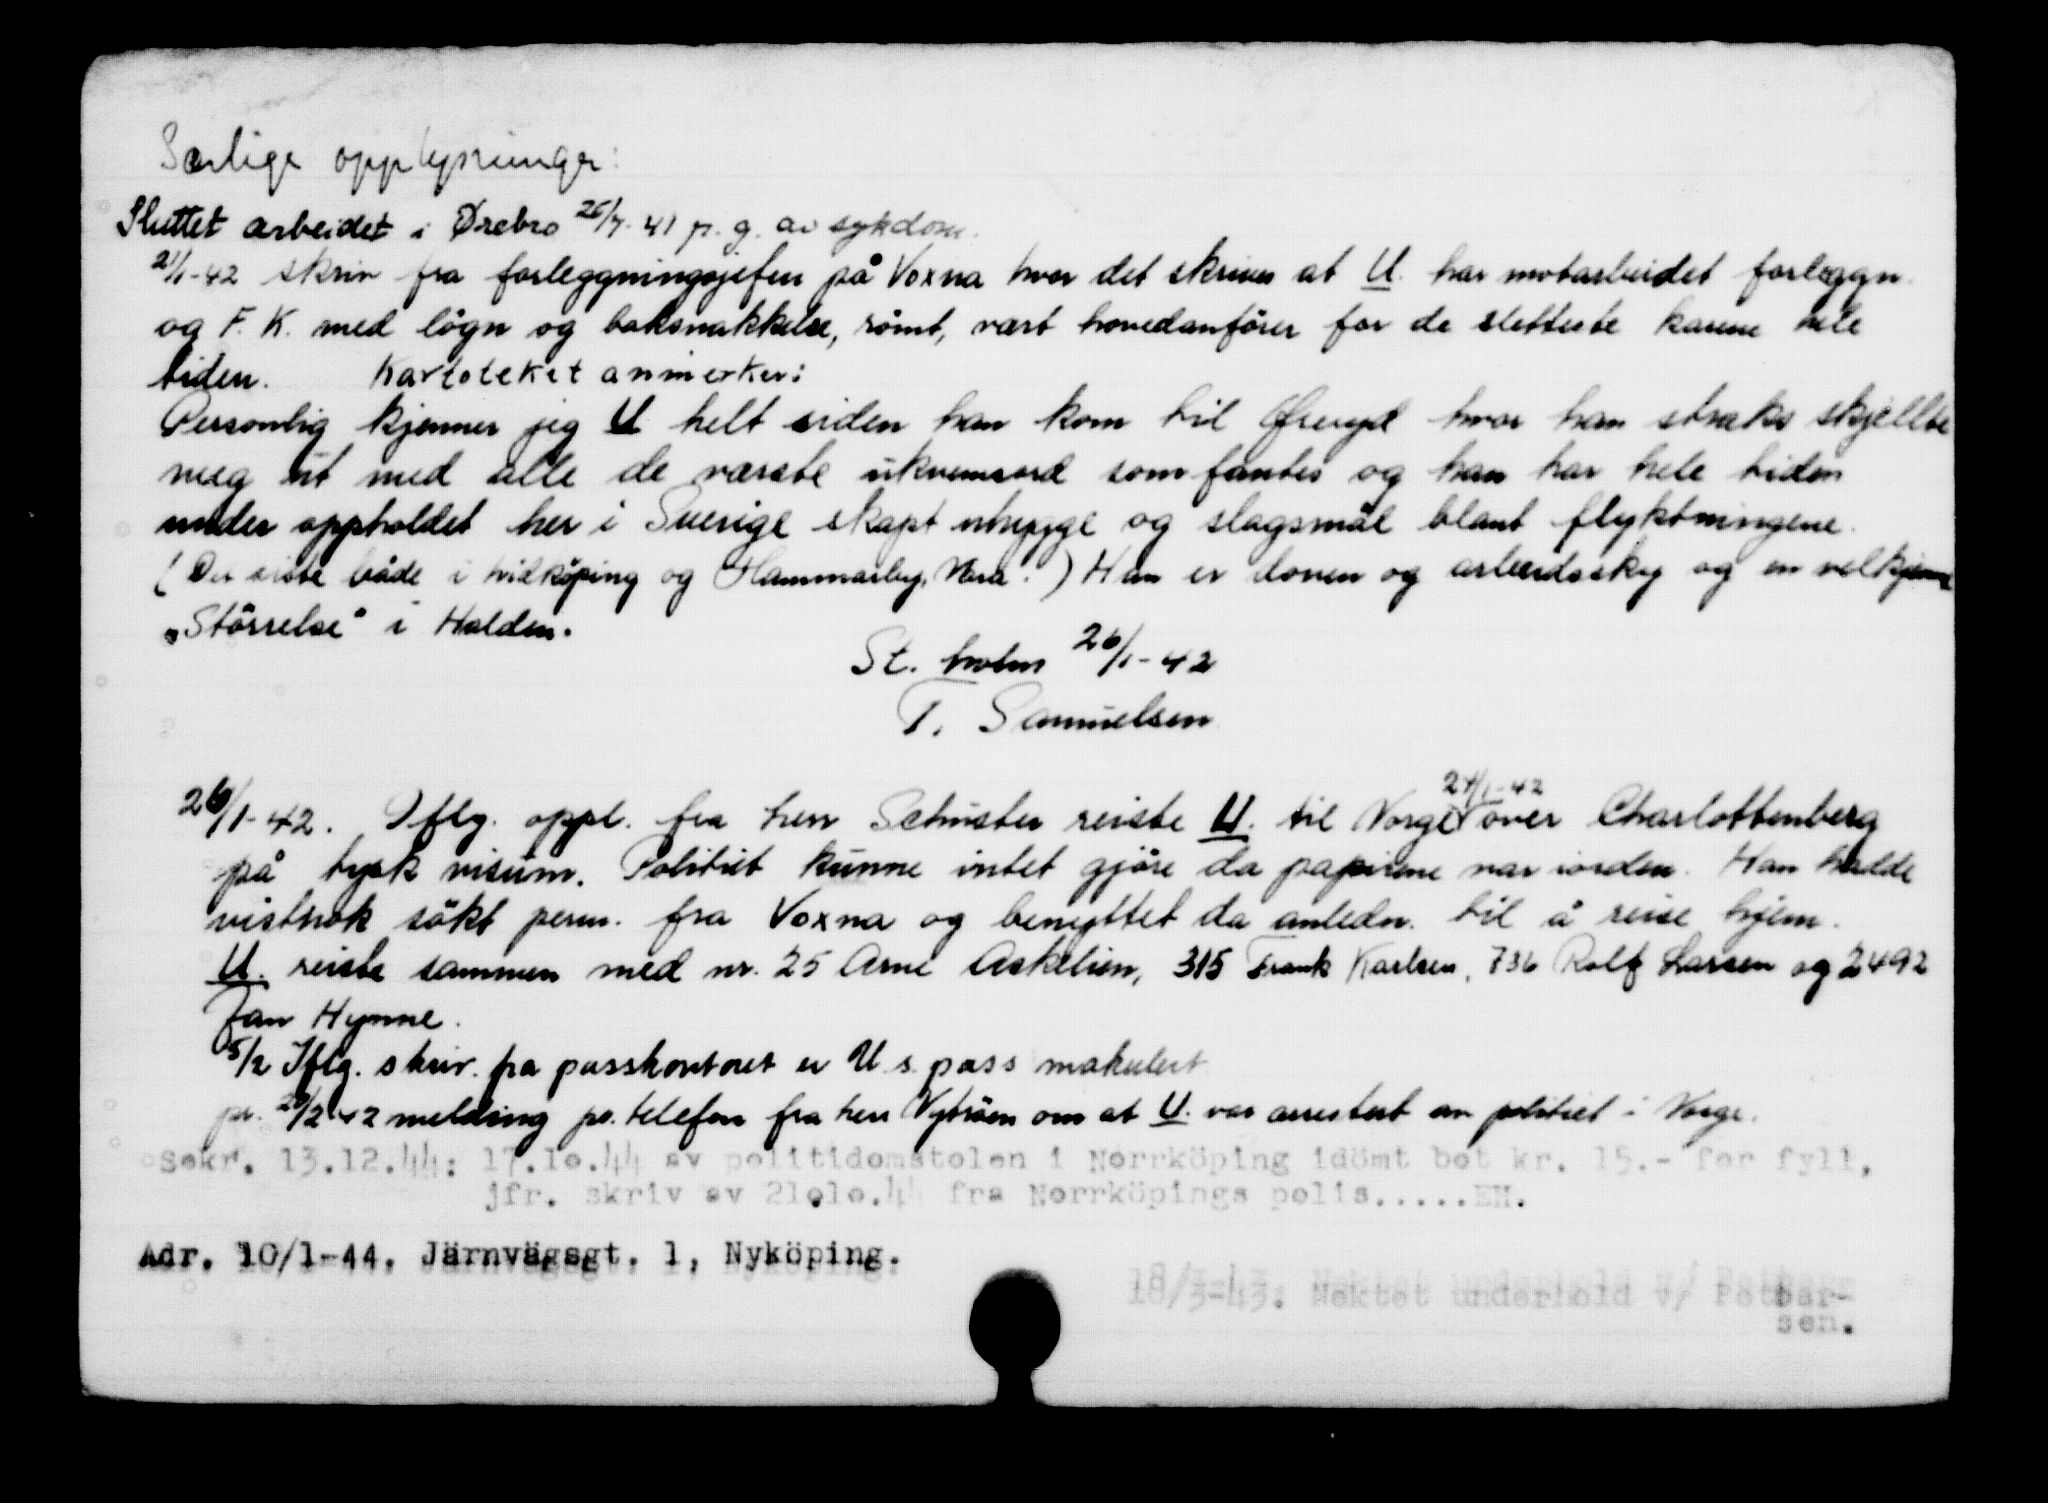 Særlige opplysninger:
Sluttet arbeidet i Ørebro 26/7-41 p.g. av sykdom.
21/1-42 skriv fra forleggningsjefen på Voxna hvor det skrives at U. har motarbeidet forleggn.
og F.K. med lögn og baksnakkelse, römt, vært hovedanförer for de sletteste karene hele
tiden. Kartoteket anmerker:
Personlig kjenner jeg U helt siden han kom til Öreryd hvor han straks skjellte
meg ut med alle de værste ukvemsord som fantes og han har hele tiden
under oppholdet her i Sverige skapt uhygge og slagsmål blant flyktningene.
(Det siste både i Lidköping og Hammarby, Nora.) Han er doven og arbeidssky og en velkjent
„Störrelse" i Halden.
St. holm 26/1-42
T. Samuelsen
24/1-42
26/1-42. Iflg. oppl. fra herr Schuster reiste U. til Norge over Charlottenberg
på tysk visum. Politiet kunne intet gjöre da papirene var iorden. Han hadde
visthok sökt perm. fra Voxna og benyttet da anledn. til å reise hjem.
U. reiste sammen med nr. 25 Arne Askelien, 315 Frank Karlsen, 736 Rolf Larsen og 2492
Jan Hynne.
5/2 Iflg. skriv. fra passkontoret er U.s. pass makulert
pr. 20/2 42 melding pr. telefon fra herr om at U. var arrestert av politiet i Norge.
Sekr. 13.12.44: 17.10.44 av politidomstolen i Norrköping idömt bot kr. 15.- for fyll,
jfr. skriv av 21.10.44 fra Norrköpings polis.....EH.
Adr. 10/1-44. Järnvägsgt. 1, Nyköping.
18/3-43. Nektet underhold v/ Petter-
sen.